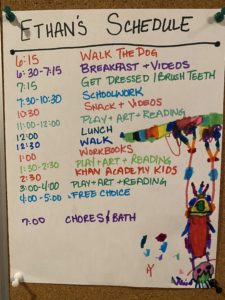 ETHAN'S SCHEDULE
6:15 WALK THE DOG
6:30-7:15 BREAKFAST + VIDEOS
7:15 GET DRESSED / BRUSH TEETH
7:30-10:30 SCHOOLWORK
10:30 SNACK + VIDEOS
11:00-12:00 PLAY + ART + READING
12:00 LUNCH
12:30 WALK
1:00 WORKBOOKS
1:30-2:30 PLAY + ART + READING
2:30 KHAN ACADEMY KIDS
3:00-4:00 PLAY + ART + READING
4:00-5:00 FREE CHOICE
7:00 CHORES & BATH